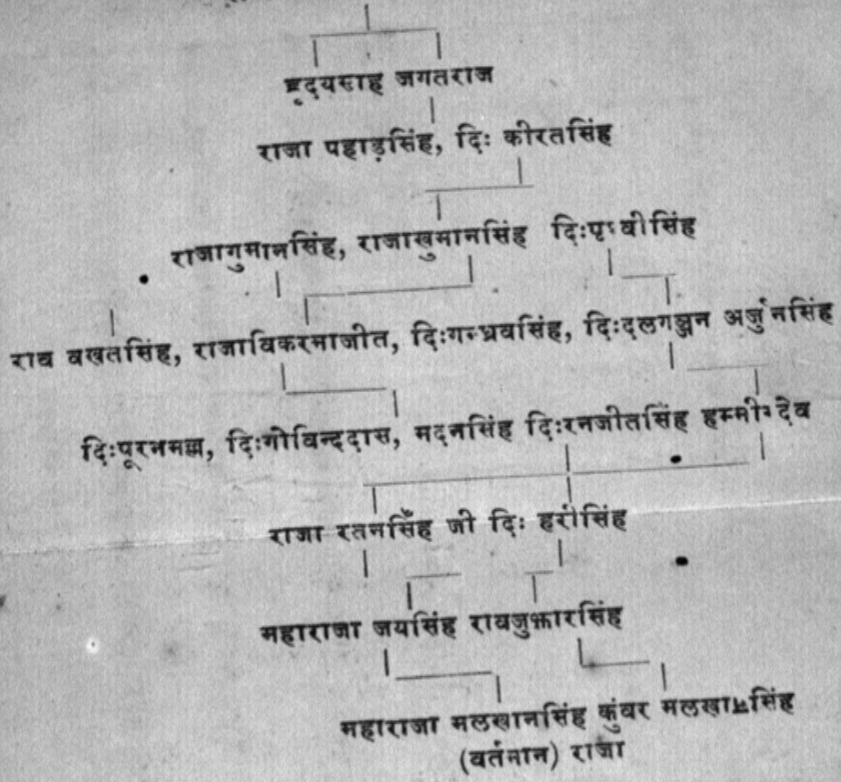 हृदयसाह जगतराज
राजा पहाड़सिंह, दिः कीरतसिंह
राजागुमानसिंह, राजाखुमानसिंह दिःपृथ्वीसिंह
राव वखतसिंह, राजाविकरमाजीत, दिःगन्ध्रवसिंह, दिःदलगञ्जन अर्जुनसिंह
दिःपूरनमल्ल, दिःगोविन्ददास, मदनसिंह दिःरनजीतसिंह हम्मीरदेव
राजा रतनसिँह जी दिः हरीसिंह
महाराजा जयसिंह रावजुझारसिंह
महाराजा मलखानसिंह कुंवर मलखानसिंह
(वर्तमान) राजा